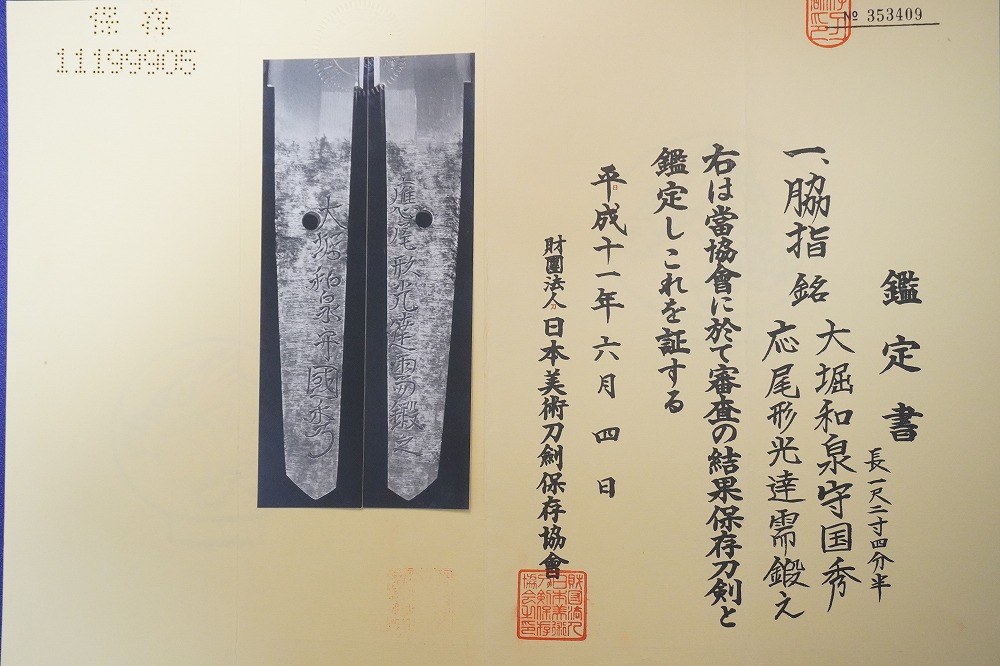 № 353409
保存
11199905
鑑定書
一、脇指 銘 大堀和泉守国秀
応尾形光達需鍛之
長一尺二寸四分半
右は當協會に於て審査の結果保存刀剣と
鑑定しこれを証する
平成十一年六月四日
財團法人日本美術刀劍保存協會
應尾形光達需鍛之
大堀和泉守國秀
財團法人日本美術刀剣保存協会之印